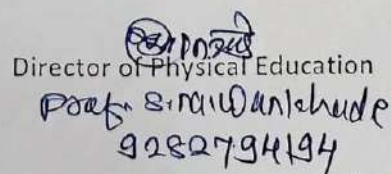 Director of Physical Education
Prof. S.N. Wankhude
9282794194